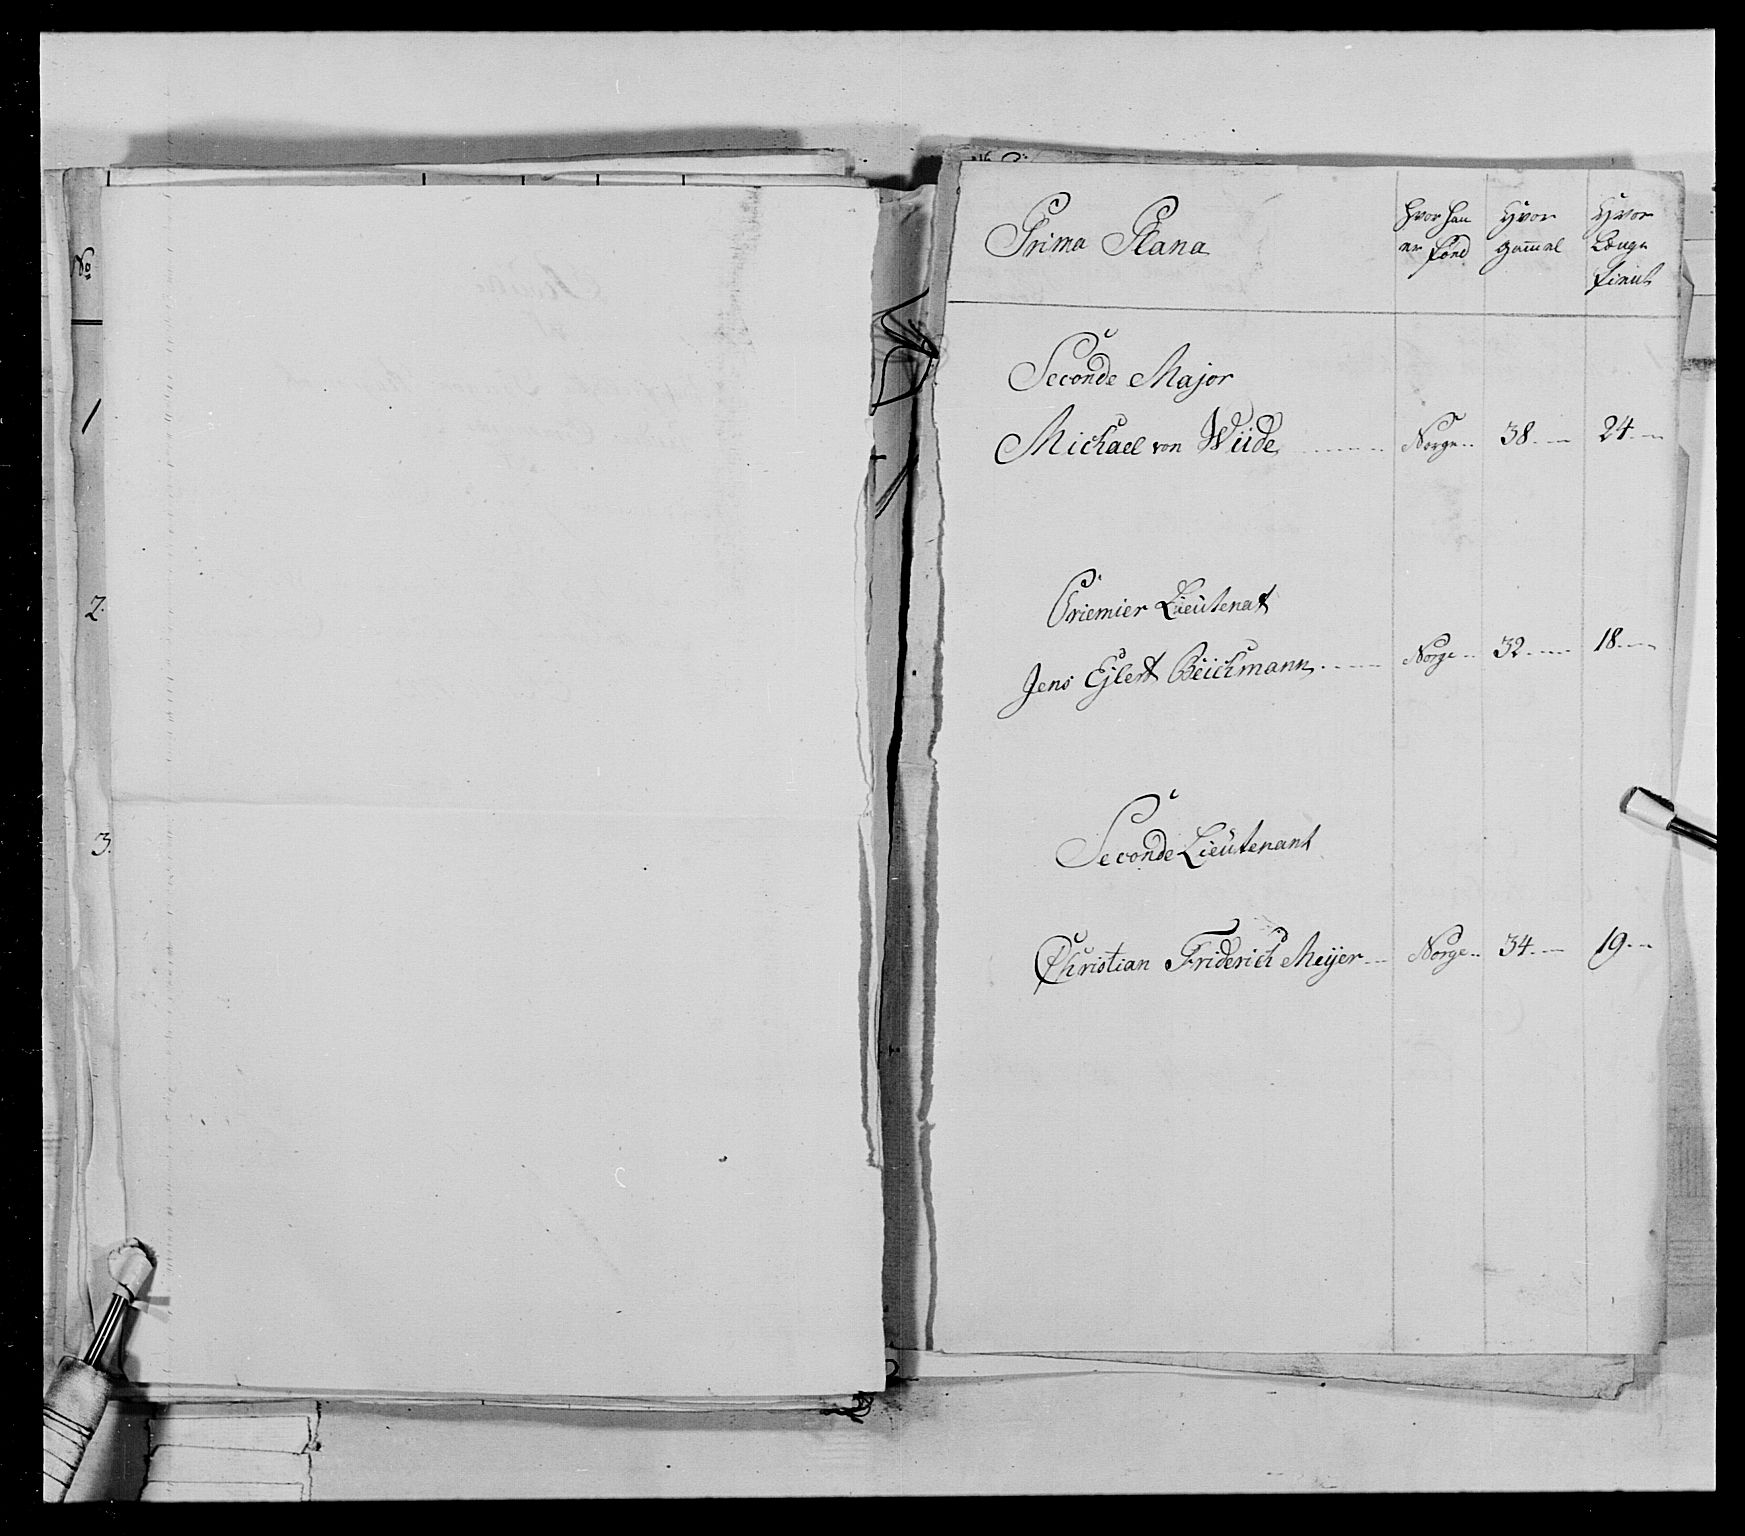 No
1
2.
3.
Prima Plana
Hvor han
er föed
Hvor
gam̄el
Hvor
Længe
tient
Seconde Major
Michael von Wüde
Norge
38
24
Priemier Lieütenat
Jens Ejlert Beichmann
Norge
32
18
Seconde Lieütenant
Christian Friderich Meijer
Norge
34
19